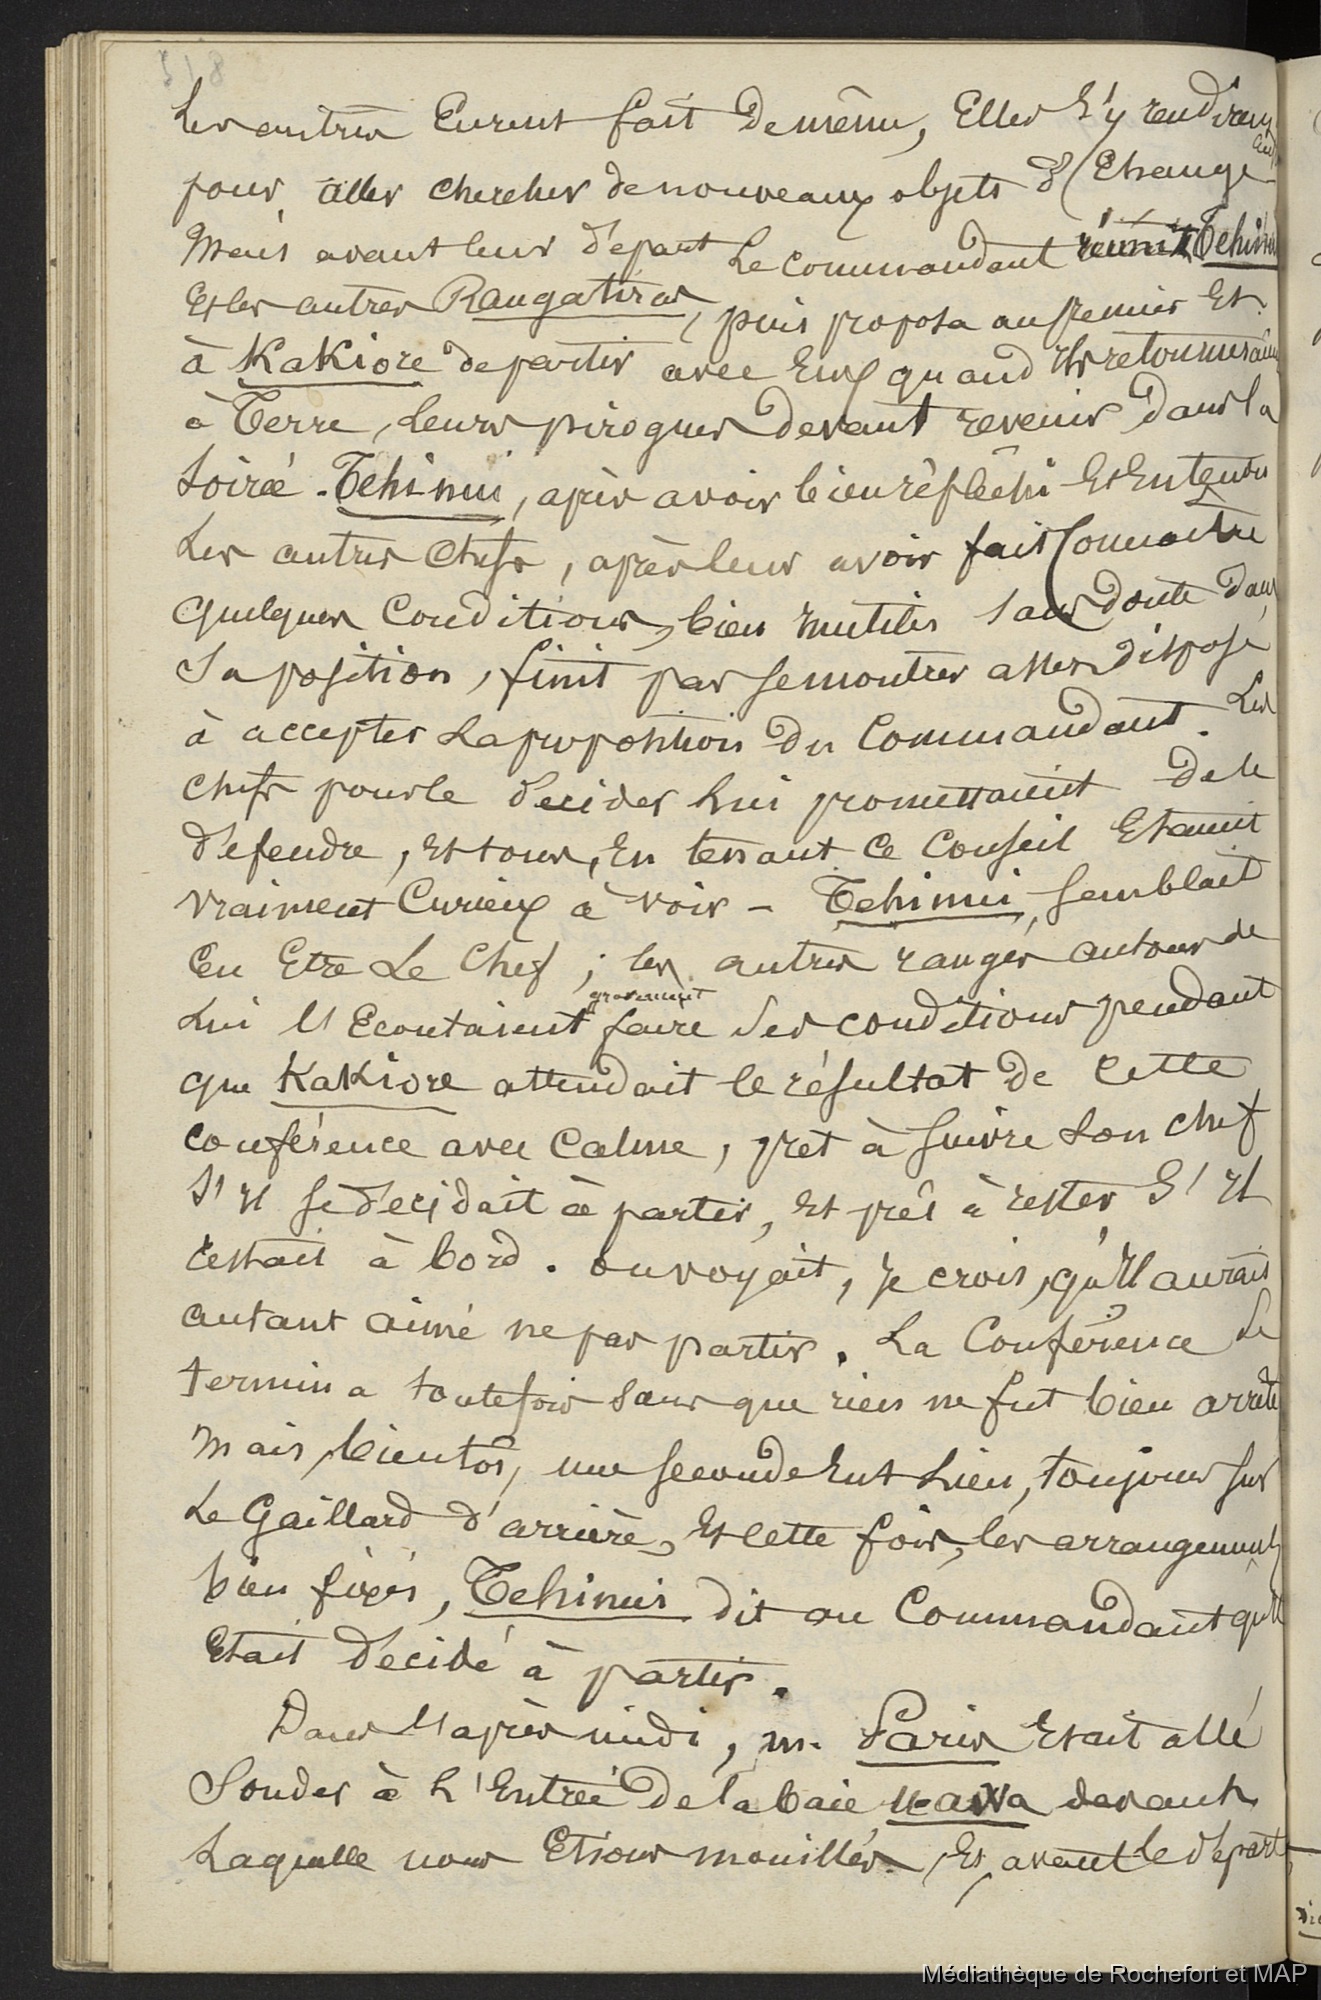 Les autres Eurent fait de même, Elles s'y rendirent
pour aller chercher de nouveaux objets d'Echange
Mais avant leur départ Le commandant réunit Tehinui
Et les autres Rangatiras, puis proposa au premier Et
à KaKiore de partir avec Eux quand Ils retourneraient
à Terre, Leurs pirogues devant revenir dans la
Soirée. Tehinui, après avoir bien réfléchi Et Entendu
Les autres Chefs, après leur avoir fait Connaitre
quelques Conditions, bien Inutiles sans doute dans
Sa position, finit par se montrer assez disposé
à accepter La proposition du Commandant. Les
Chefs pour le décider Lui promettaient de le
défendre, Et tous, En tenant Ce Conseil Etaient
vraiment Curieux à voir - Tehinui semblait
En Etre Le Chef ; les autres rangés autour de
Lui l'Ecoutaient gravement faire Ses conditions pendant
que KaKiore attendait le résultat de Cette
Conférence avec Calme, pret à suivre Son Chef
S'Il se décidait à partir, Et prêt à rester S'Il
restait à bord. on voyait, je crois, qu'Il aurait
autant aimé ne pas partir. La Conférence Se
termina toutefois Sans que rien ne fut bien arrêté
Mais, bientôt, une seconde Eut Lieu, toujours sur
Le Gaillard d'arrière, Et Cette fois, les arrangements
bien fixés, Tehinui dit au Commandant qu'Il
Etait décidé à partir.
Dans l'après midi, m. Paris Etait allé
Sonder à L'Entrée de la baie devant
Laquelle nous Etions mouillés. Et, avant le départ
Médiathèque de Rochefort et MAP